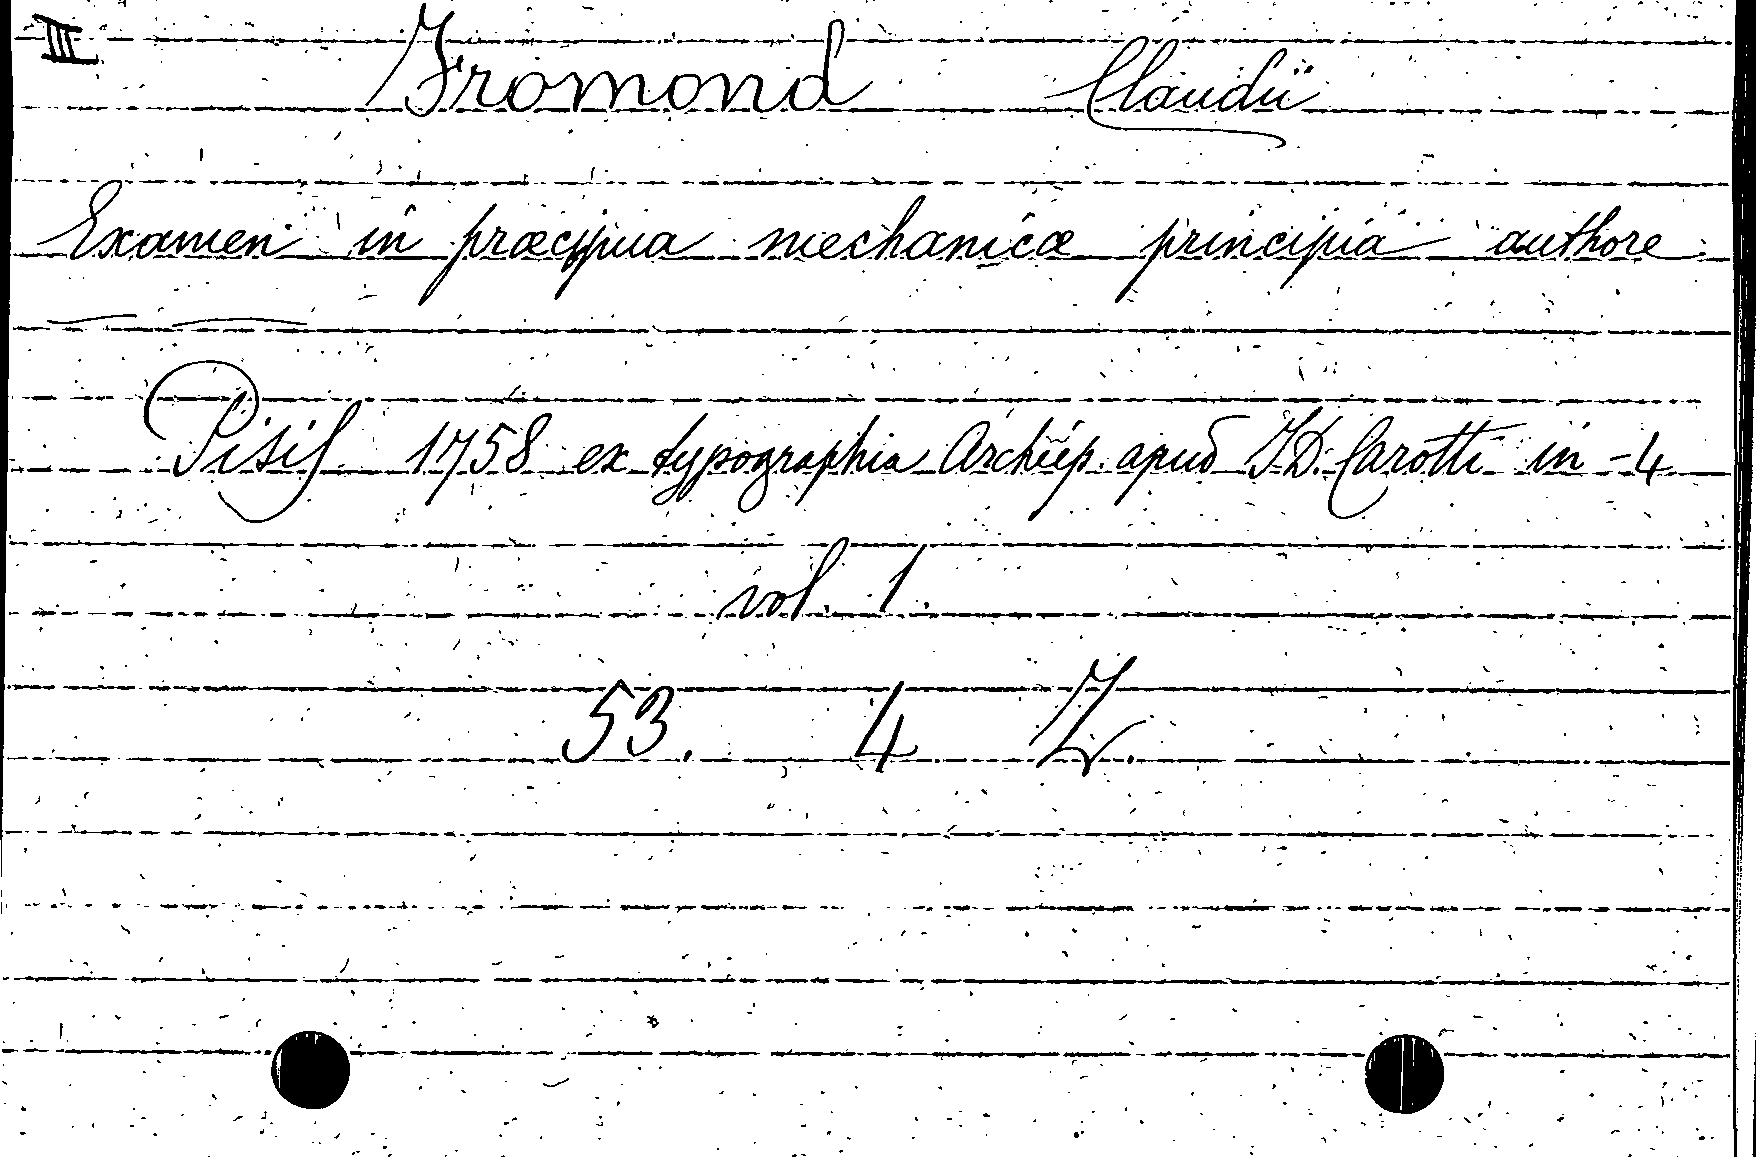 III Fromond Claudii
Examen in præcipua mechanicæ principia authore
Pisis 1758 ex typographia Archiep. apud I.D. Carotti in-4
vol. 1.
53. 4 Z.